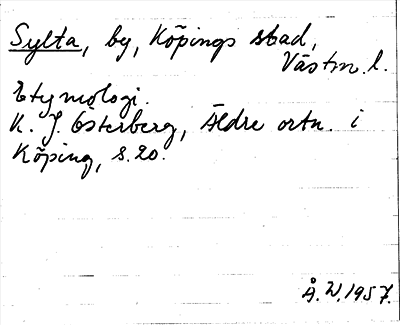 Sylta, by, Köpings stad,
Västm. l.
Etymologi.
K. J. Österberg, Äldre ortn. i
Köping, s. 20.
Å. W. 1957.